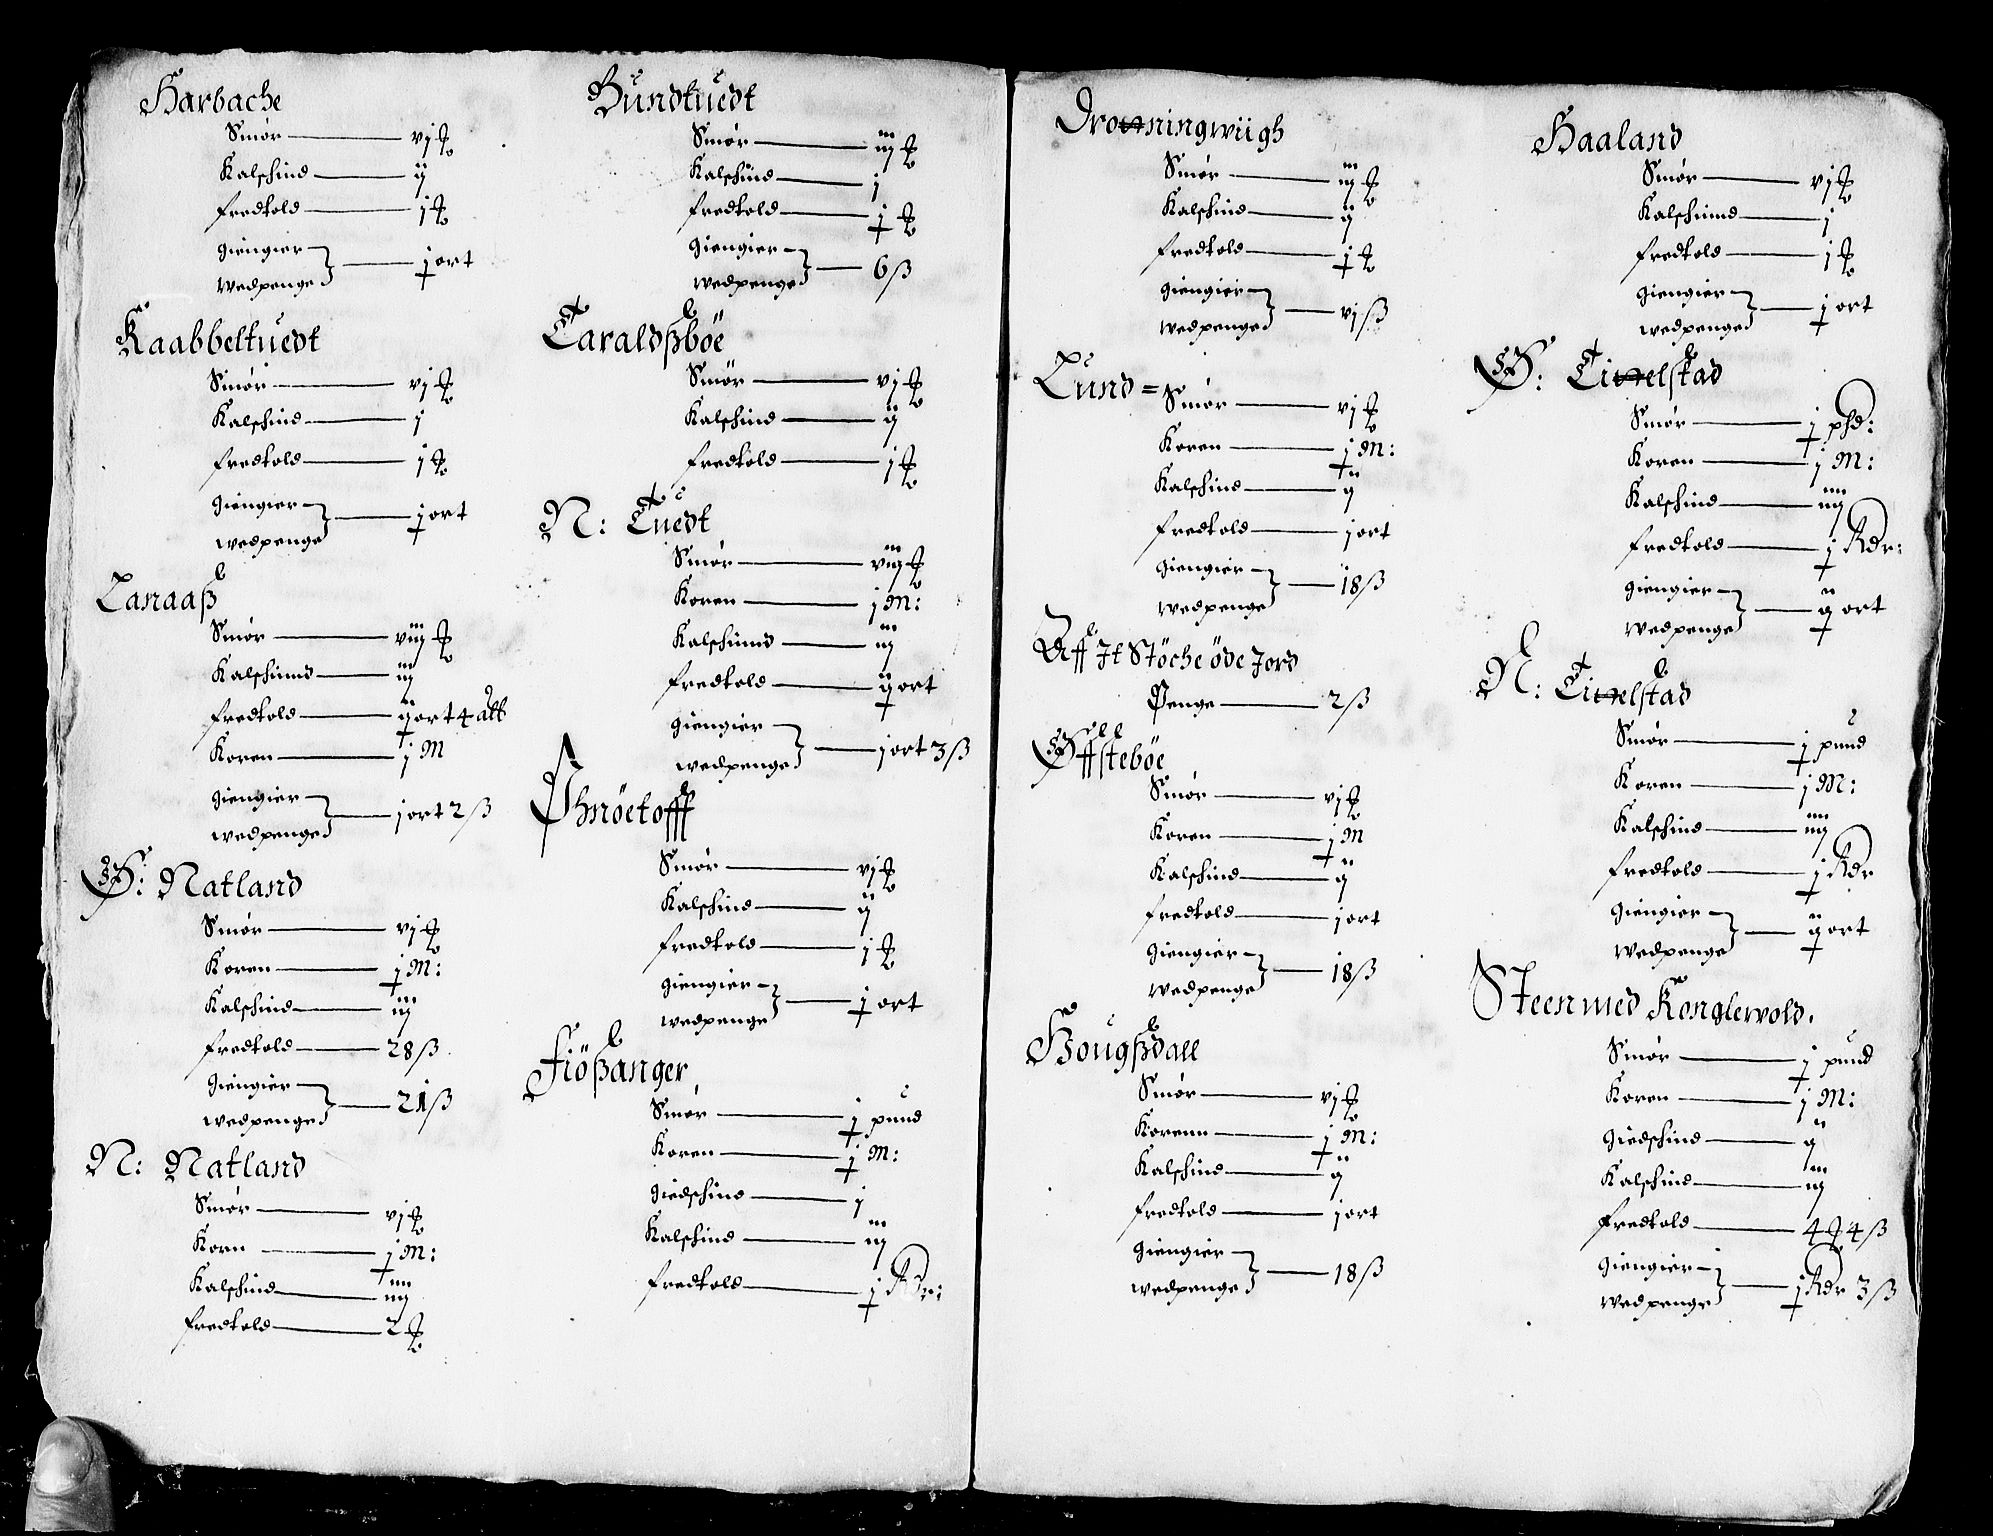 Harbache
Smør — vj ℔
Kalschind — ij
fredtold — j ℔
giengier
wedpenge — j ort
Kaabbeltuedt
Smør — vj ℔
Kalschind — j
fredtold — j ℔
giengier
wedpenge — j ort
Lanaaß
Smør — viij ℔
Kalschind — iij
fredtold — ij ort 4 alb
Koren — j M
giengier
wedpenge — j ort 2 ß
S: Natland
Smør — vj ℔
Koren — j M:
Kalschind — iij
fredtold — 28 ß
giengier
wedpenge — 21 ß
N: Natland
Smør — vj ℔
Korn — j M:
Kalschind — iiij
fredtold — 2 ℔
Bundtuedt
Smør — iij ℔
Kalschind — j
fredtold — j ℔
giengier
wedpenge — 6 ß
Taraldßböe
Smør — vj ℔
Kalschind — ij
fredtold — j ℔
N: Tuedt
Smør — viij ℔
Koren — j M:
Kalschind — iij
fredtold — ij ort
giengier
wedpenge — j ort 3 ß
Smør — vj ℔
Kalschind — ij
fredtold — j ℔
giengier
wedpenge — j ort
Fiößanger
Smør — j pund
Koren — j M:
giedschind — j
Kalschind — iij
fredtold — j Rdr:
Dronningwiigh
Smør — iij ℔
Kalschind — ij
fredtold — j ℔
giengier
wedpenge — vj ß
Lund = Smør — vj ℔
Koren — j M:
Kalschind — ij
fredtold — j ort
giengier
wedpenge — 18 ß
Aff It Stöche öde Jord
Penge — 2 ß
Smør — vj ℔
Koren — j M
Kalschind — ij
fredtold — j ort
giengier
wedpenge — 18 ß
Hougßdall
Smør — vj ℔
Korenn — j M:
Kalschind — ij
fredtold — j ort
giengier
wedpenge — 18 ß
Haaland
Smør — vj ℔
Kalschind — j
fredtold — j ℔
giengier
wedpenge — j ort
S: Tinelstad
Smør — j phd:
Koren — j M:
Kalschind — iiij
fredtold — j Rdr:
giengier
wedpenge — ij ort
N: Tinelstad
Smør — j pund
Koren — j M:
Kalschind — iiij
fredtold — j Rdr
giengier
wedpenge — ij ort
Steen med Konglevold.
Smør — j pund
Koren — j M:
giedschind — ij
Kalschind — iij
fredtold — 4 ℔ 4 ß
giengier
wedpenge — j Rdr 3 ß